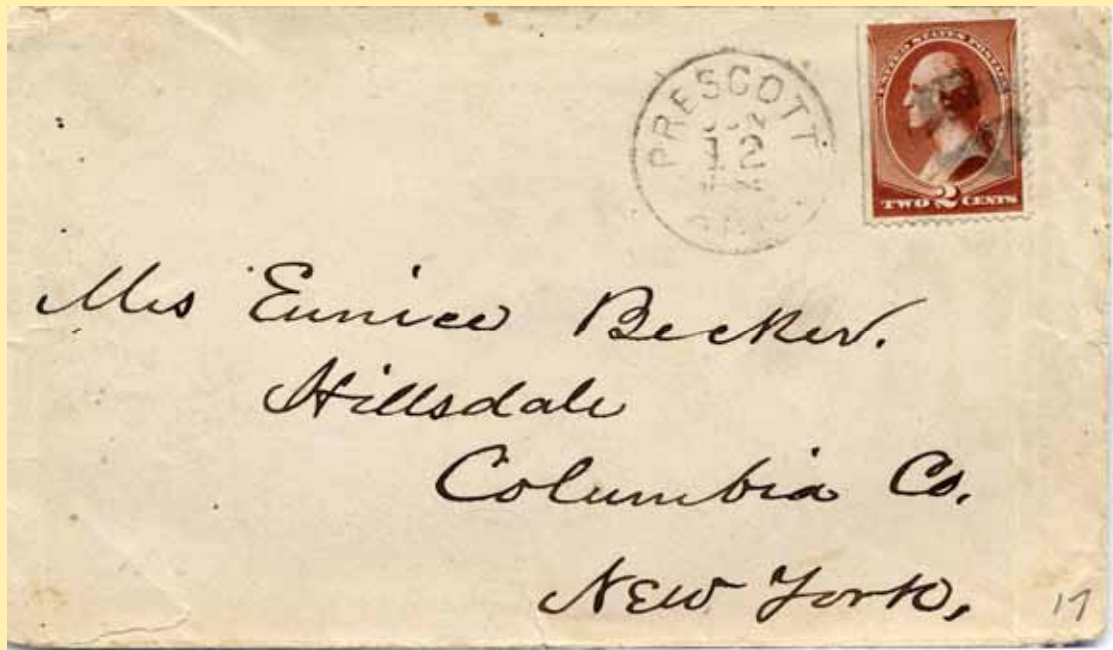 PRESCOTT
12
UNITED STATES POSTAGE
2
TWO CENTS
Mrs Eunice Becker.
Hillsdale
Columbia Co.
New York,
17